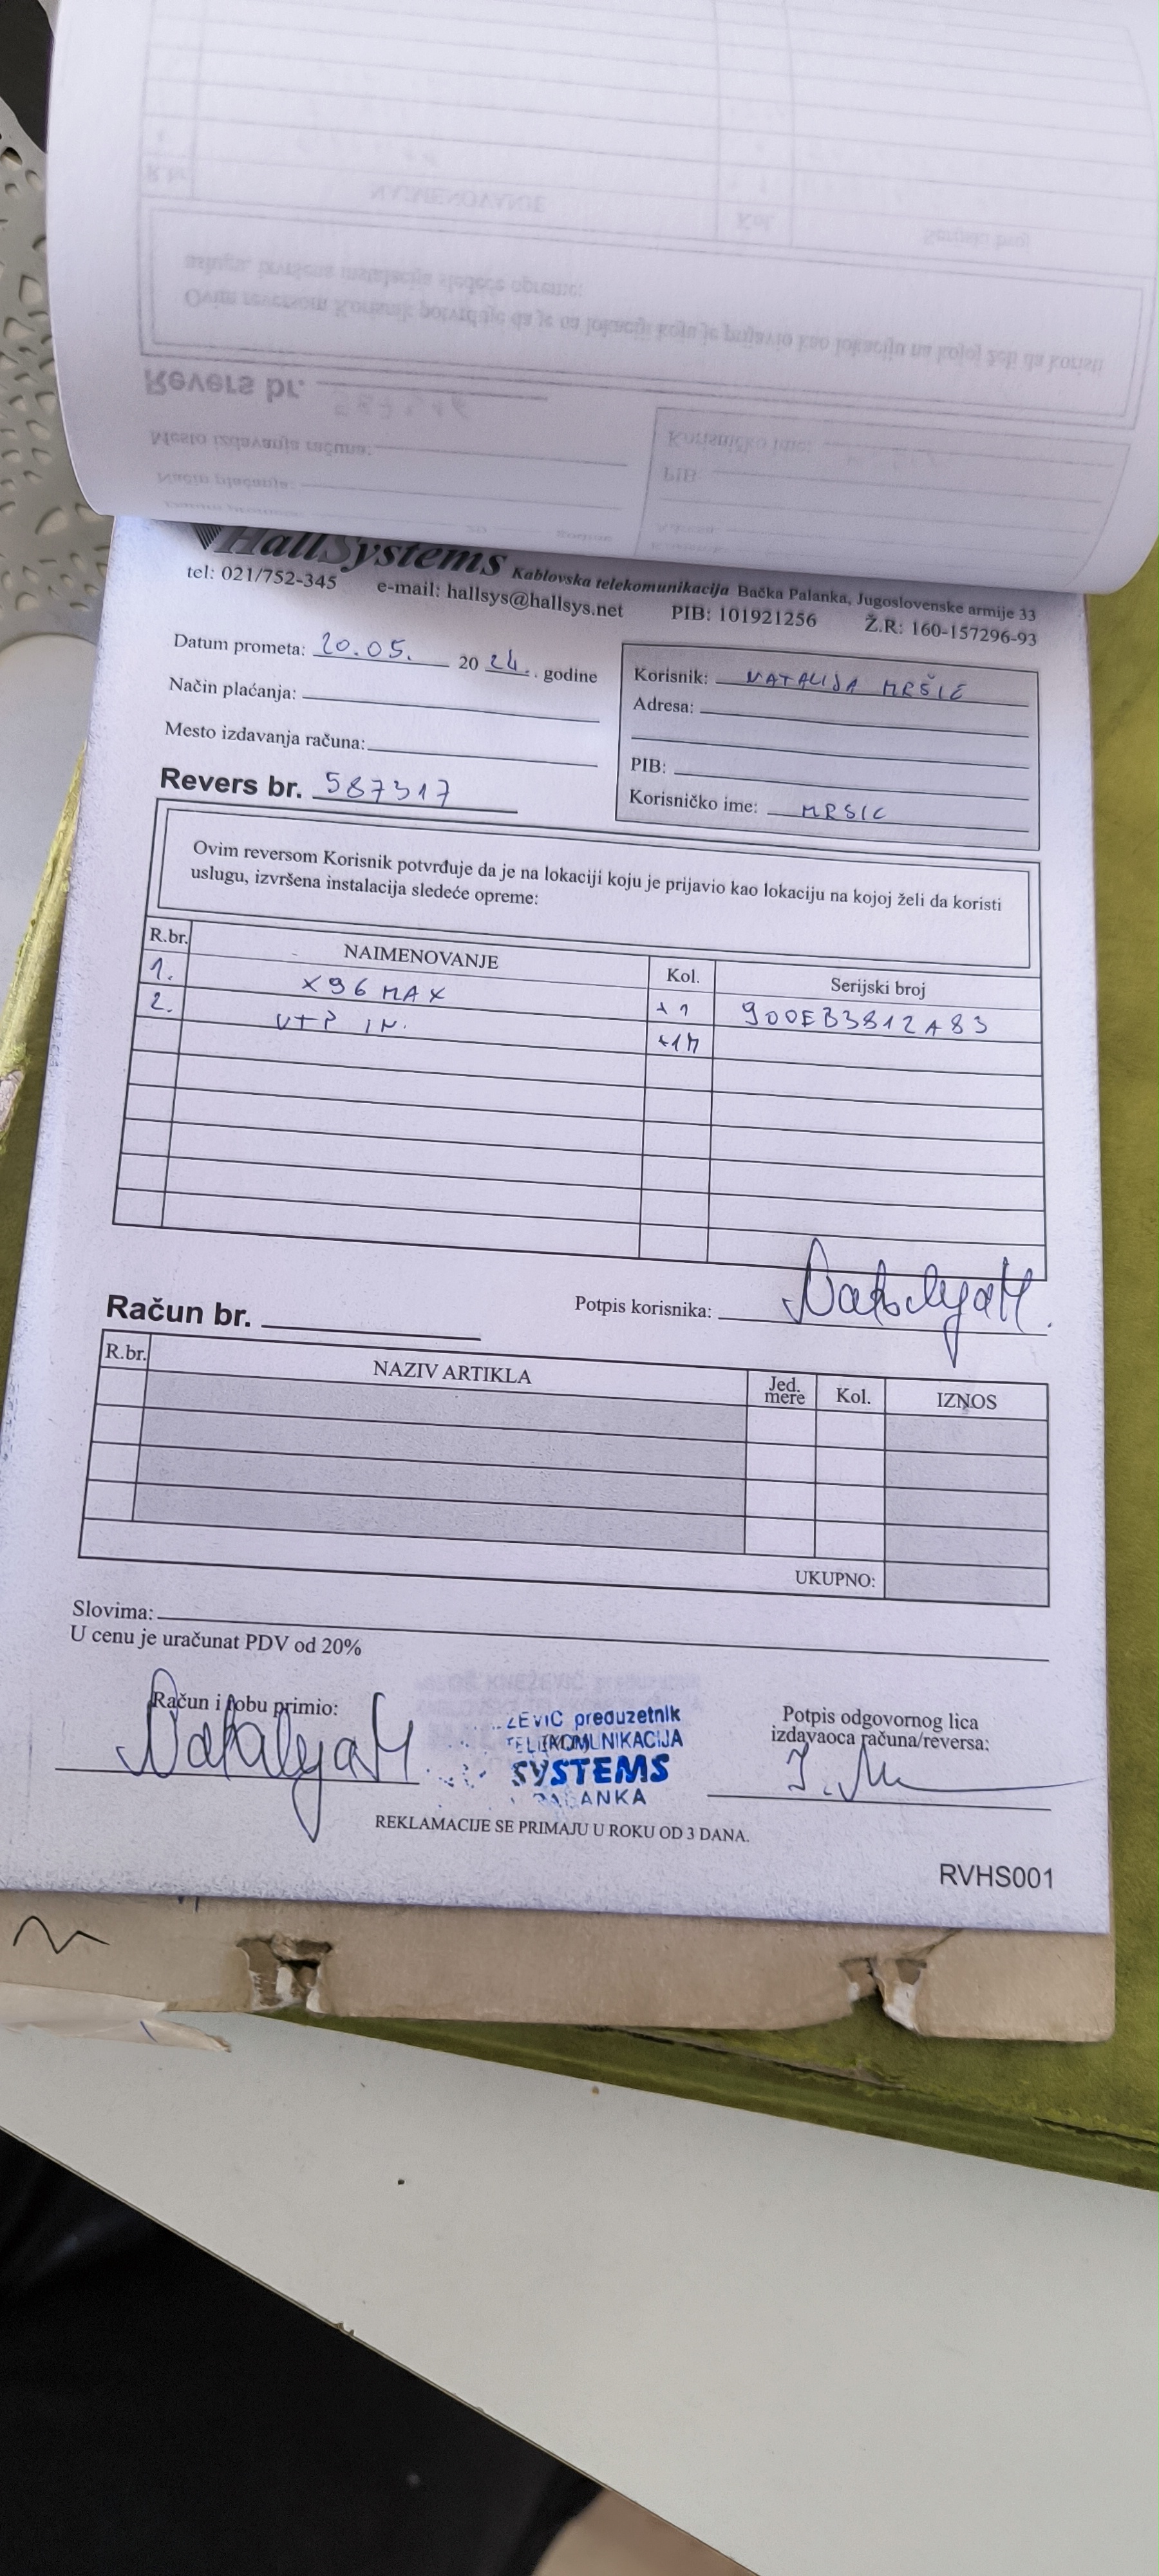 HallSystems Kablovska telekomunikacija Bačka Palanka, Jugoslovenske armije 33
tel: 021/752-345 e-mail: hallsys@hallsys.net PIB: 101921256 Ž.R: 160-157296-93
Datum prometa: 20.05. 20 24. godine
Način plaćanja:
Mesto izdavanja računa:
Korisnik: NATALIJA MRŠIĆ
Adresa:
PIB:
Korisničko ime: MRSIC
Revers br. 587317
Ovim reversom Korisnik potvrđuje da je na lokaciji koju je prijavio kao lokaciju na kojoj želi da koristi
uslugu, izvršena instalacija sledeće opreme:
R.br. NAIMENOVANJE Kol. Serijski broj
1. X96 MAX +1 900EB3812A83
2. UTP IN. +1M
Potpis korisnika: NatalijaM.
Račun br.
R.br. NAZIV ARTIKLA Jed. mere Kol. IZNOS
UKUPNO:
Slovima:
U cenu je uračunat PDV od 20%
Račun i robu primio:
NatalijaM
ZEVIĆ preduzetnik
TELEKOMUNIKACIJA
SYSTEMS
PALANKA
Potpis odgovornog lica
izdavaoca računa/reversa:
REKLAMACIJE SE PRIMAJU U ROKU OD 3 DANA.
RVHS001